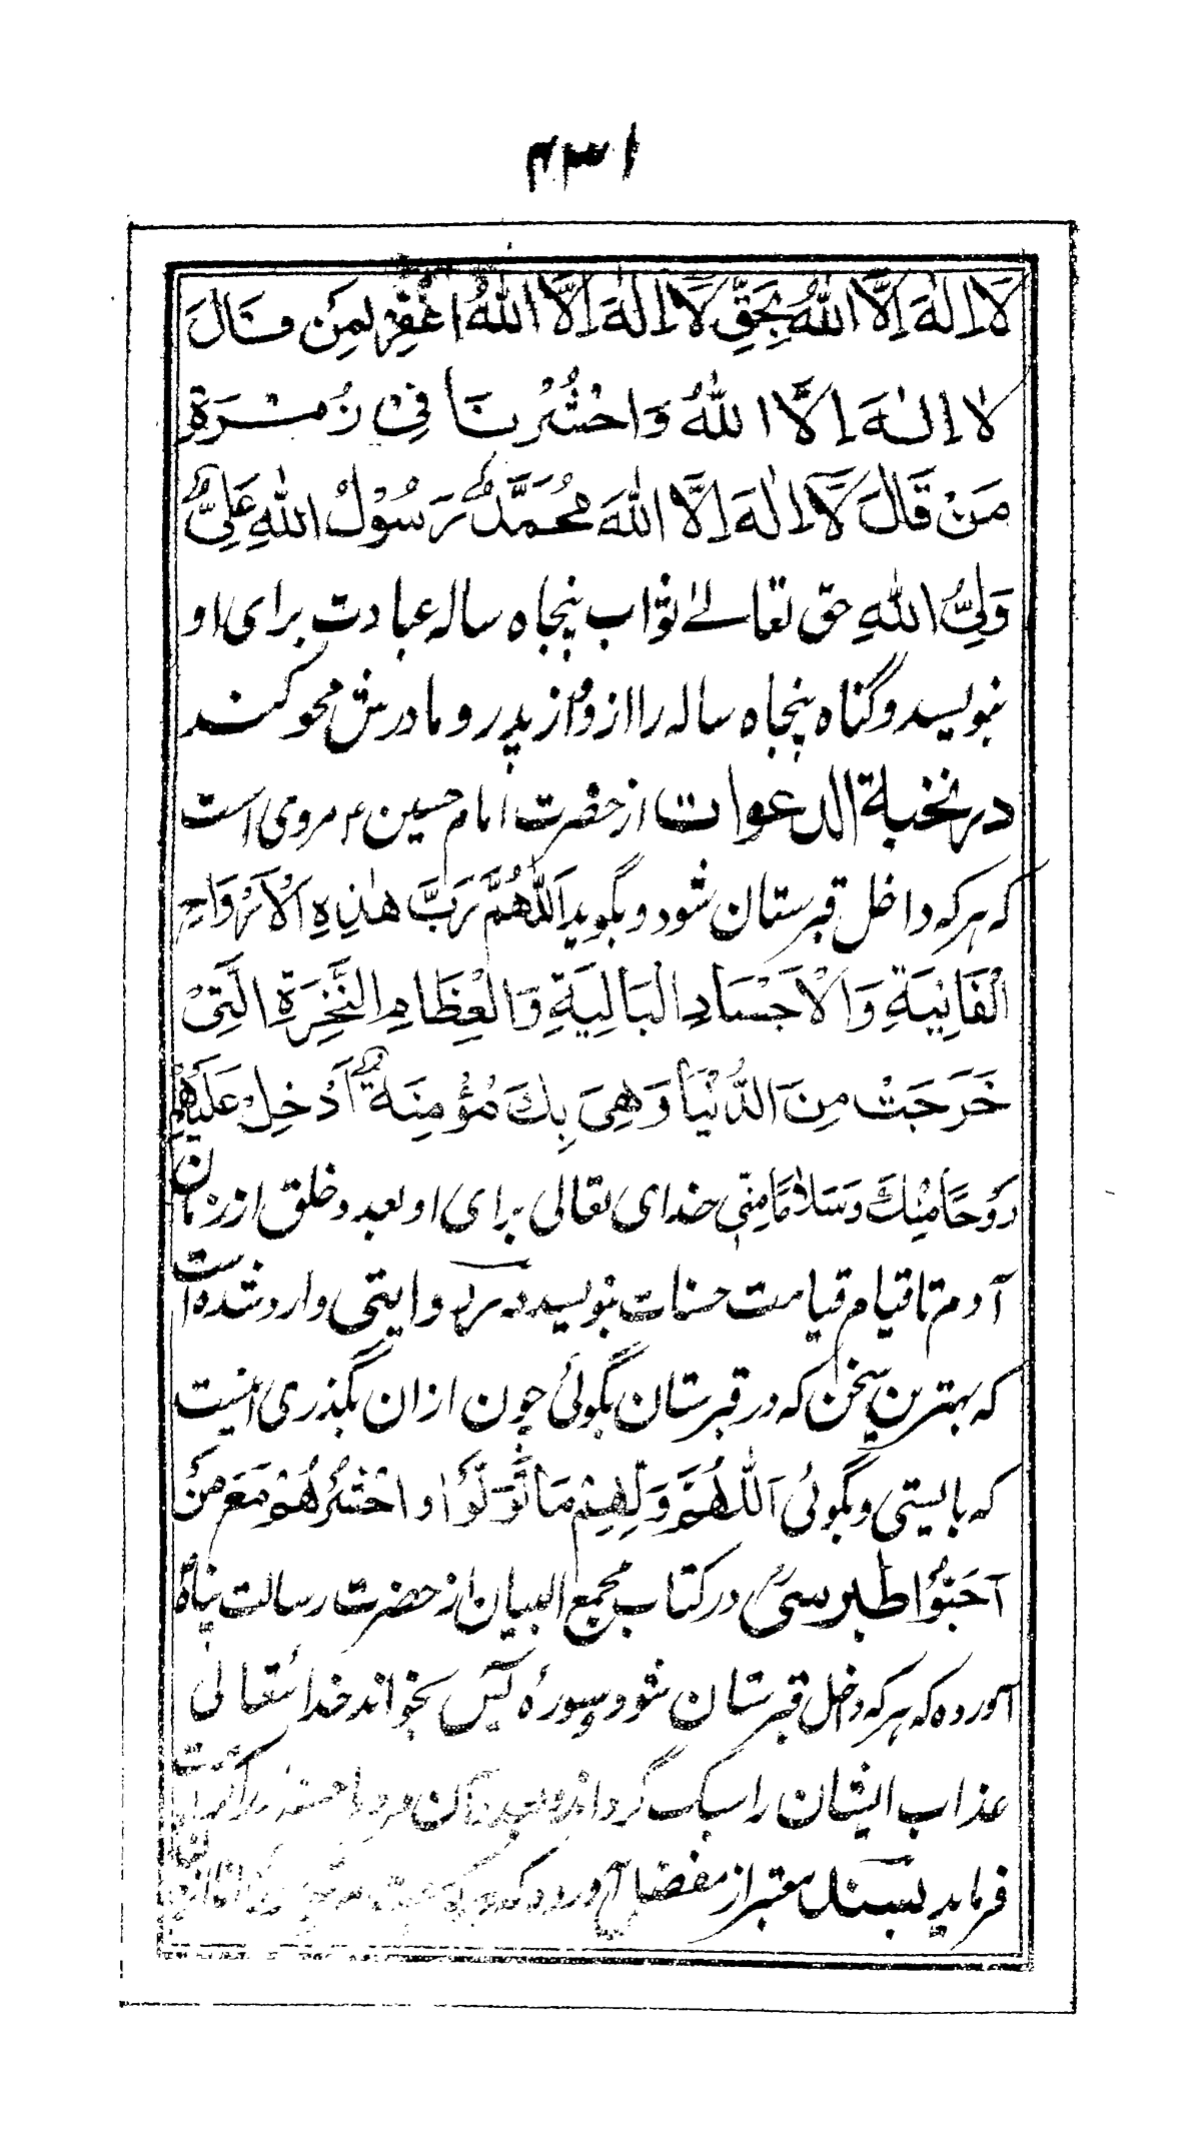 ۴۳۱
لَا اِلٰهَ اِلَّا اللّٰهُ بِحَقِّ لَا اِلٰهَ اِلَّا اللّٰهُ اغْفِرْ لِمَنْ قَالَ
لا اِلٰهَ اِلَّا اللّٰهُ وَاحْشُرْنَا فِیْ زُمْرَةِ
مَنْ قَالَ لَا اِلٰهَ اِلَّا اللّٰهُ مُحَمَّدٌ رَسُوْلُ اللّٰهِ عَلِیٌّ
وَلِیُّ اللّٰهِ حق تعالے ثواب پنجاه ساله عبادت برای او
بنویسد و گناه پنجاه ساله را از و و از پدر و مادرش محو کند
در نخبة الدعوات از حضرت امام حسین ع مروی است
که هر که داخل قبرستان شود و بگوید اَللّٰهُمَّ رَبَّ هٰذِهِ الْاَرْوَاحِ
الْفَانِیَةِ وَالْاَجْسَادِ الْبَالِیَةِ وَالْعِظَامِ النَّخِرَةِ الَّتِیْ
خَرَجَتْ مِنَ الدُّنْیَا وَهِیَ بِكَ مُؤْمِنَةٌ اَدْخِلْ عَلَیْهِمْ
رَوْحًا مِنْكَ وَسَلَامًا مِنِّی خدای تعالی برای او بعدد خلق از زمان
آدم تا قیام قیامت حسنات بنویسد و در روایتی وارد شده است
که بهترین سخن که در قبرستان بگوئی چون ازان بگذری اینست
که بایستی و بگوئی اَللّٰهُمَّ وَلِّهِمْ مَا تَوَلَّوْا وَاحْشُرْهُمْ مَعَ مَنْ
اَحَبُّوْا طبرسیؒ در کتاب مجمع البیان از حضرت رسالت پناه
آورده که هر که داخل قبرستان شود و سورهٔ یٰس بخواند خدا تعالی
عذاب ایشان را سبک گرداند و بعدد
فرماید بسند معتبر از مفضل آورده که هر که